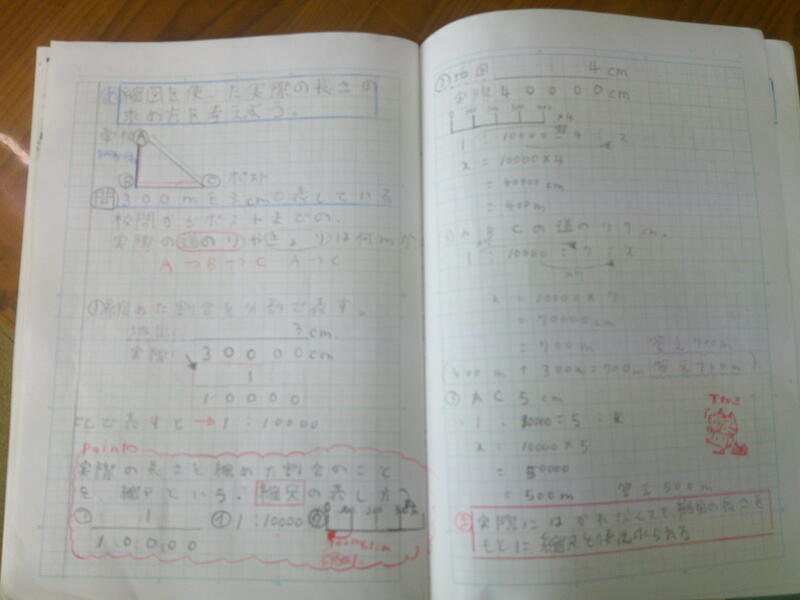 め 縮図を使った実際の長さの
求め方を考えよう。
学校 A
B C ポスト
問 300mを3cmで表している
校門からポストまでの、
実際の道のりやきょりは何mか
A→B→C A→C
①縮めた割合を分数で表す。
地図 3cm
実際 30000cm
1
10000
比で表すと→1:10000
Point
実際の長さを縮めた割合のこと
を、縮尺という。縮尺の表し方
㋐ 1 ㋑ 1:10000
10000
②地図 4cm
実際 40000cm
×4
1:10000=4:x
x=10000×4
=40000cm
=400m
A B Cの道のり7cm.
1:10000=7:x
×7
x=10000×7
=70000cm
=700m 答え700m
(400m+300m=700m 答え700m)
③AC 5cm
1:10000=5:x
x=10000×5
=50000
=500m 答え500m
ま 実際にはかれなくても縮図の長さを
もとに縮尺を使い求られる